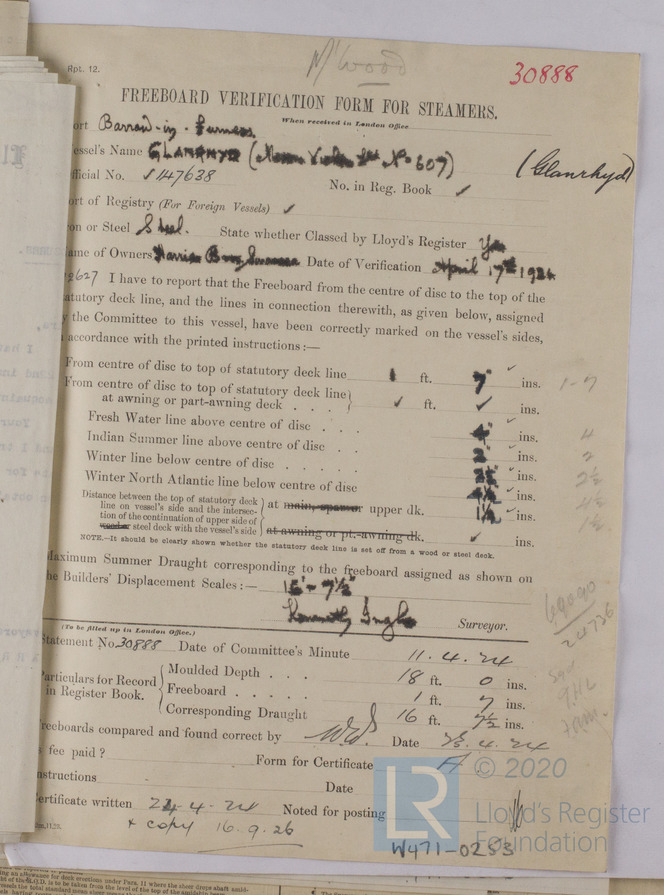 Rpt. 12.
30888
FREEBOARD VERIFICATION FORM FOR STEAMERS.
When received in London Office
ort Barrow-in-Furness
essel's Name GLANRHYD (No 607)
(Glanrhyd)
fficial No. 147638 No. in Reg. Book ✓
ort of Registry (For Foreign Vessels) ✓
on or Steel Steel. State whether Classed by Lloyd's Register Yes
ame of Owners Harries Bros Swansea Date of Verification April 17th 1924
2627 I have to report that the Freeboard from the centre of disc to the top of the
atutory deck line, and the lines in connection therewith, as given below, assigned
y the Committee to this vessel, have been correctly marked on the vessel's sides,
accordance with the printed instructions :—
From centre of disc to top of statutory deck line 1 ft. 7" ins. 1-7
From centre of disc to top of statutory deck line
at awning or part-awning deck . . . ✓ ft. ✓ ins.
Fresh Water line above centre of disc . . . 4" ins. 4
Indian Summer line above centre of disc . . 2" ins. 2
Winter line below centre of disc . . . . . 2½ ins. 2½
Winter North Atlantic line below centre of disc 4½ ins. 4½
Distance between the top of statutory deck
line on vessel's side and the intersec-
tion of the continuation of upper side of
wood or steel deck with the vessel's side
at main, spar or upper dk. 1½ ins. 1½
at awning or pt.-awning dk. ✓ ins.
NOTE.—It should be clearly shown whether the statutory deck line is set off from a wood or steel deck.
Maximum Summer Draught corresponding to the freeboard assigned as shown on
he Builders' Displacement Scales :— 16' - 7½"
Surveyor.
(To be filled up in London Office.)
Statement No. 30888 Date of Committee's Minute 11.4.24
24736
Particulars for Record
in Register Book.
Moulded Depth . . . 18 ft. 0 ins.
Freeboard . . . . . 1 ft. 7 ins.
Corresponding Draught 16 ft. 7½ ins.
reeboards compared and found correct by Date 23.4.24
s fee paid ? Form for Certificate A
nstructions Date
ertificate written 24.4.24 Noted for posting
+ copy 16.9.26
© 2020
LR
Lloyd's Register
Foundation
W471-0253